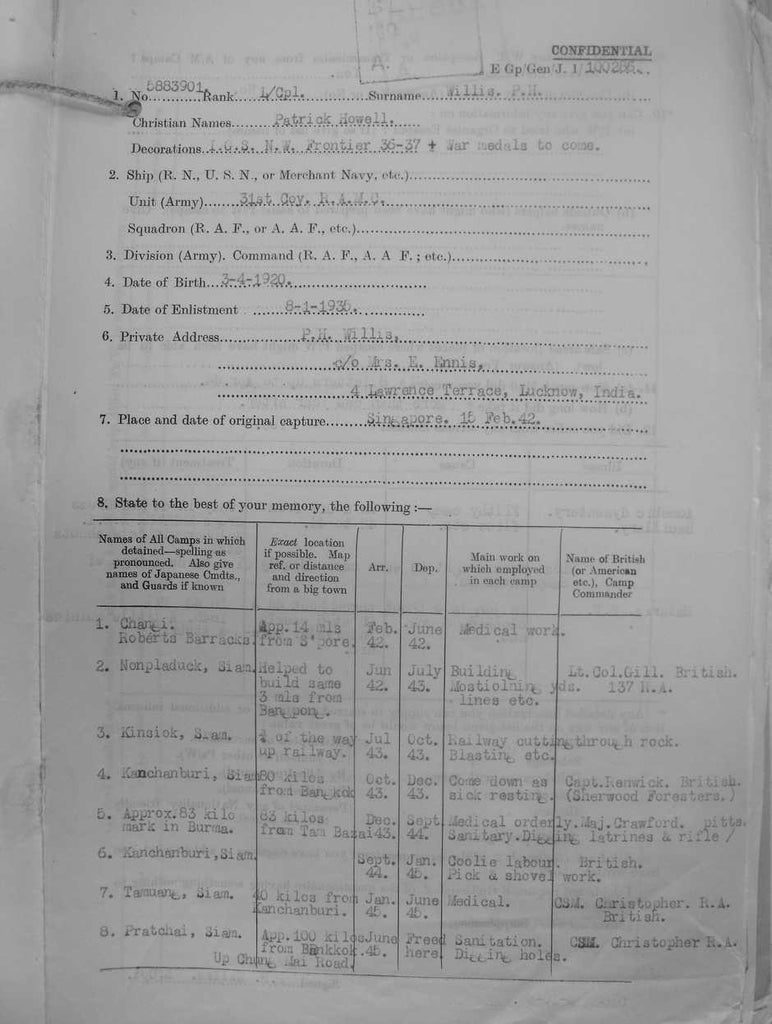 CONFIDENTIAL
A.
E Gp/Gen J. 1
1. No. 5883901 Rank L/Cpl. Surname Willis. P.H.
Christian Names Patrick Howell.
Decorations I.G.S. N.W. Frontier 36-37 + War medals to come.
2. Ship (R. N., U. S. N., or Merchant Navy, etc.)
Unit (Army) 31st Coy. R.A.M.C.
Squadron (R. A. F., or A. A. F., etc.)
3. Division (Army). Command (R. A. F., A. A F. ; etc.)
4. Date of Birth 3-4-1920.
5. Date of Enlistment 8-1-1936.
6. Private Address P.H. Willis,
c/o Mrs. E. Ennis,
4 Lawrence Terrace, Lucknow, India.
7. Place and date of original capture Singapore. 15 Feb.42.
8. State to the best of your memory, the following :—
Names of All Camps in which detained—spelling as pronounced. Also give names of Japanese Cmdts., and Guards if known
Exact location if possible. Map ref. or distance and direction from a big town
Arr.
Dep.
Main work on which employed in each camp
Name of British (or American etc.), Camp Commander
1. Changi. App.14 mls Feb. June Medical work.
Roberts Barracks from S'pore. 42. 42.
2. Nonpladuck, Siam. Helped to Jun July Building Lt.Col.Gill. British.
build same 42. 43. yds. 137 R.A.
3 mls from lines etc.
Bangpong.
3. Kinsiok, Siam. of the way Jul Oct. Railway cutting through rock.
up railway. 43. 43. Blasting etc.
4. Kanchanburi, Siam 80 kilos Oct. Dec. Come down as Capt.Renwick. British.
from Bangkok 43. 43. sick resting. (Sherwood Foresters.)
5. Approx.83 kilo 83 kilos Dec. Sept. Medical orderly. Maj.Crawford. pitts.
mark in Burma. from Tam Bazai 43. 44. Sanitary.Digging latrines & rifle /
6. Kanchanburi,Siam. Sept. Jan. Coolie labour. British.
44. 45. Pick & shovel work.
7. Tamuang, Siam. kilos from Jan. June Medical. CSM. Christopher. R.A.
Kanchanburi. 45. 45. British.
8. Pratchai, Siam. App.100 kilos June Freed Sanitation. CSM. Christopher R.A.
from Bankkok .45. here Digging holes.
Up Chung Mai Road.